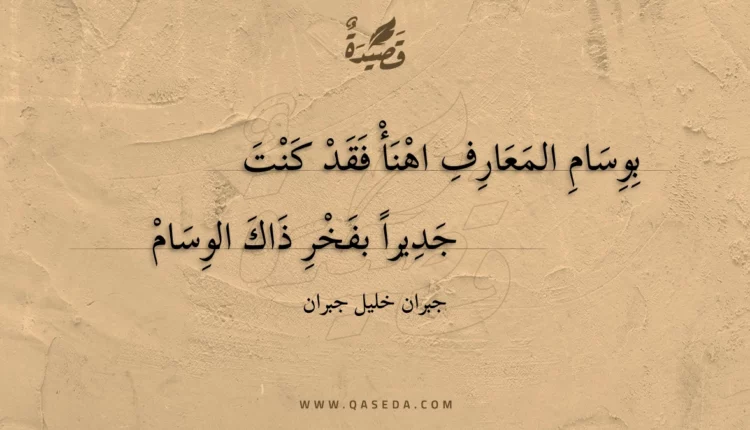 قَصِيْدَةٌ
بِوِسَامِ المَعَارِفِ اهْنَأْ فَقَدْ كَنْتَ
جَدِيراً بفَخْرِ ذَاكَ الوِسَامْ
جبران خليل جبران
WWW.QASEDA.COM